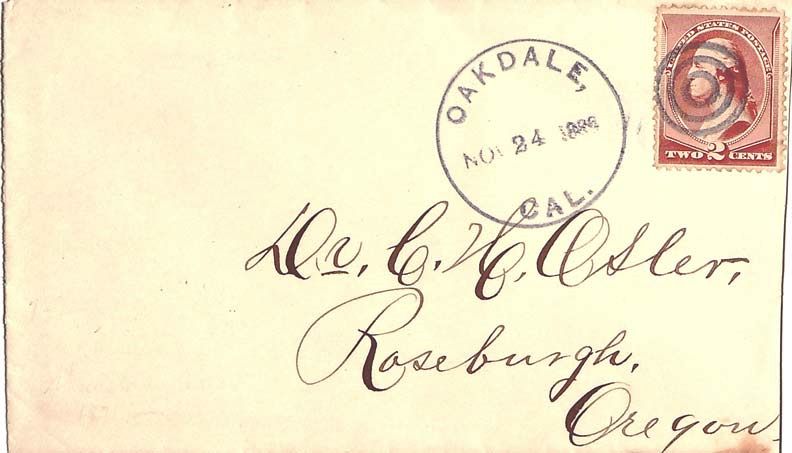 UNITED STATES POSTAGE
TWO 2 CENTS
OAKDALE,
NOV 24 1886
CAL.
Dr. C. H. Osler,
Roseburgh,
Oregon.